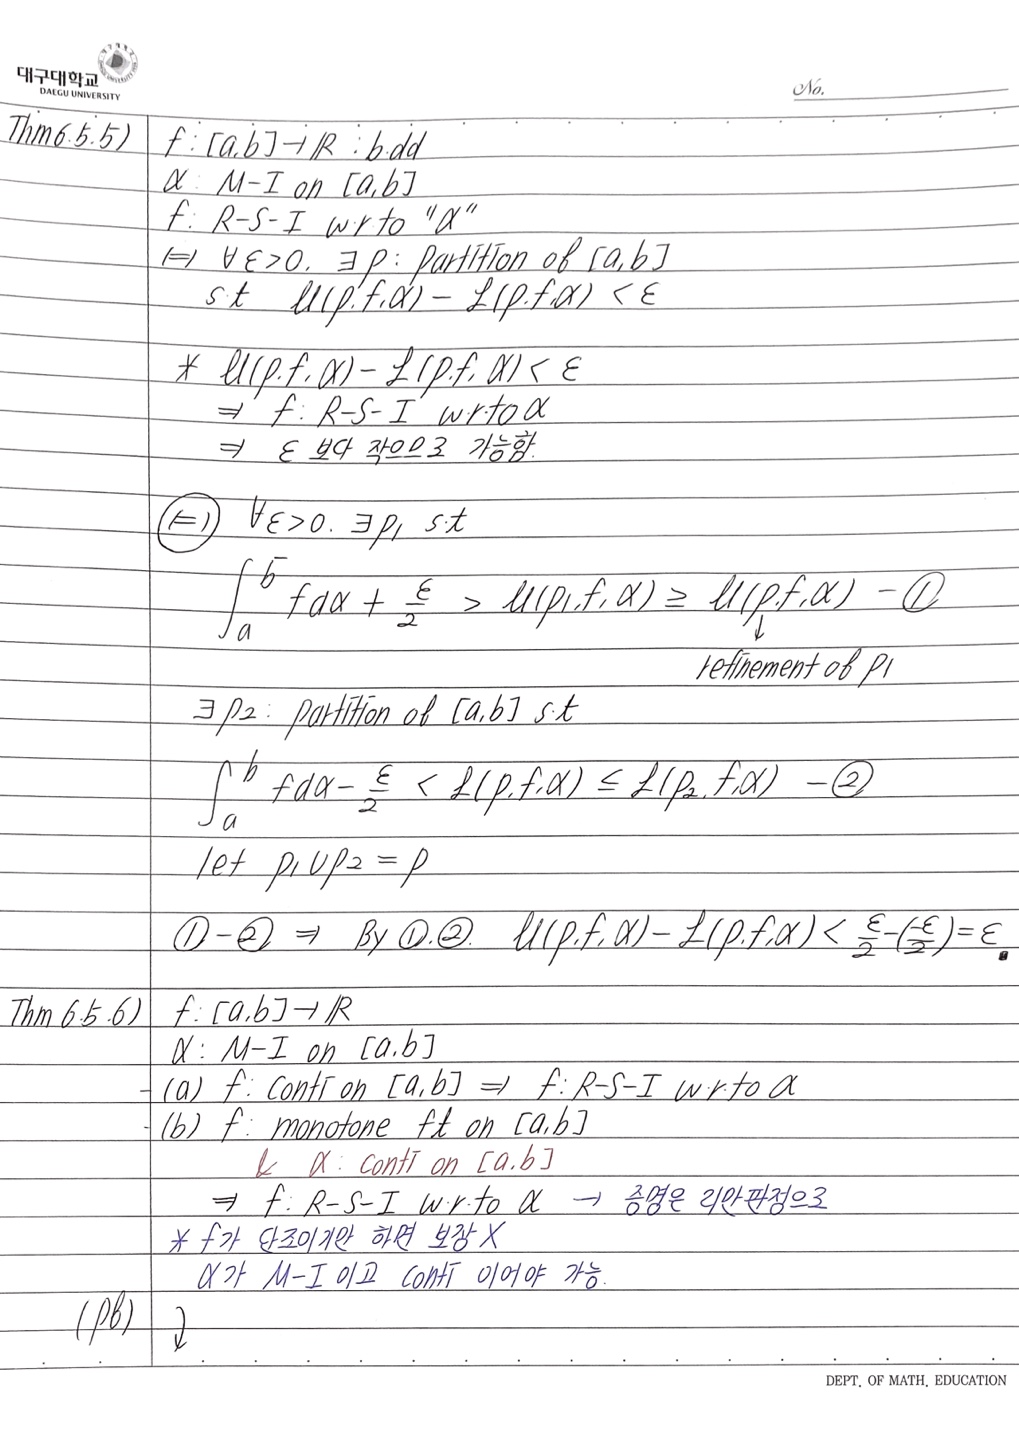 대구대학교
DAEGU UNIVERSITY
No.
Thm6.5.5) f: [a,b]→ℝ : b.dd
α: M-I on [a,b]
f: R-S-I w.r.to "α"
⇔ ∀ε>0. ∃p: partition of [a,b]
s.t U(p.f.α) - L(p.f.α) < ε
* U(p.f.α) - L(p.f.α) < ε
⇒ f: R-S-I w.r.to α
⇒ ε 보다 작으므로 가능함.
∀ε>0. ∃p₁ s.t
∫ₐᵇ̄ fdα + ε/2 > U(p₁.f.α) ≥ U(p.f.α) - ①
↓
refinement of p₁
∃p₂: partition of [a,b] s.t
∫ₐᵇ fdα - ε/2 < L(p.f.α) ≤ L(p₂.f.α) - ②
let p₁∪p₂ = p
①-② ⇒ By ①.②. U(p.f.α) - L(p.f.α) < ε/2-(-ε/2) = ε.
Thm 6.5.6) f: [a,b]→ℝ
α: M-I on [a.b]
-(a) f: conti on [a,b] ⇒ f: R-S-I w.r.to α
-(b) f: monotone ft on [a,b]
& α: conti on [a.b]
⇒ f: R-S-I w.r.to α → 증명은 리만판정으로
* f가 단조이기만 하면 보장 X
α가 M-I 이고 conti 이어야 가능.
(pf) ↓
DEPT. OF MATH. EDUCATION